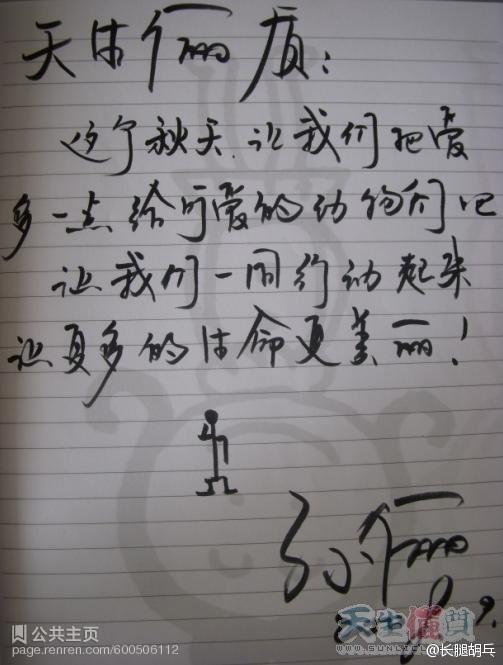 天生俪质：
这个秋天，让我们把爱
多一点给可爱的动物们吧
让我们一同行动起来
让更多的生命更美丽！
孙俪
9.
天生俪质
公共主页
page.renren.com/600506112
@长腿胡兵